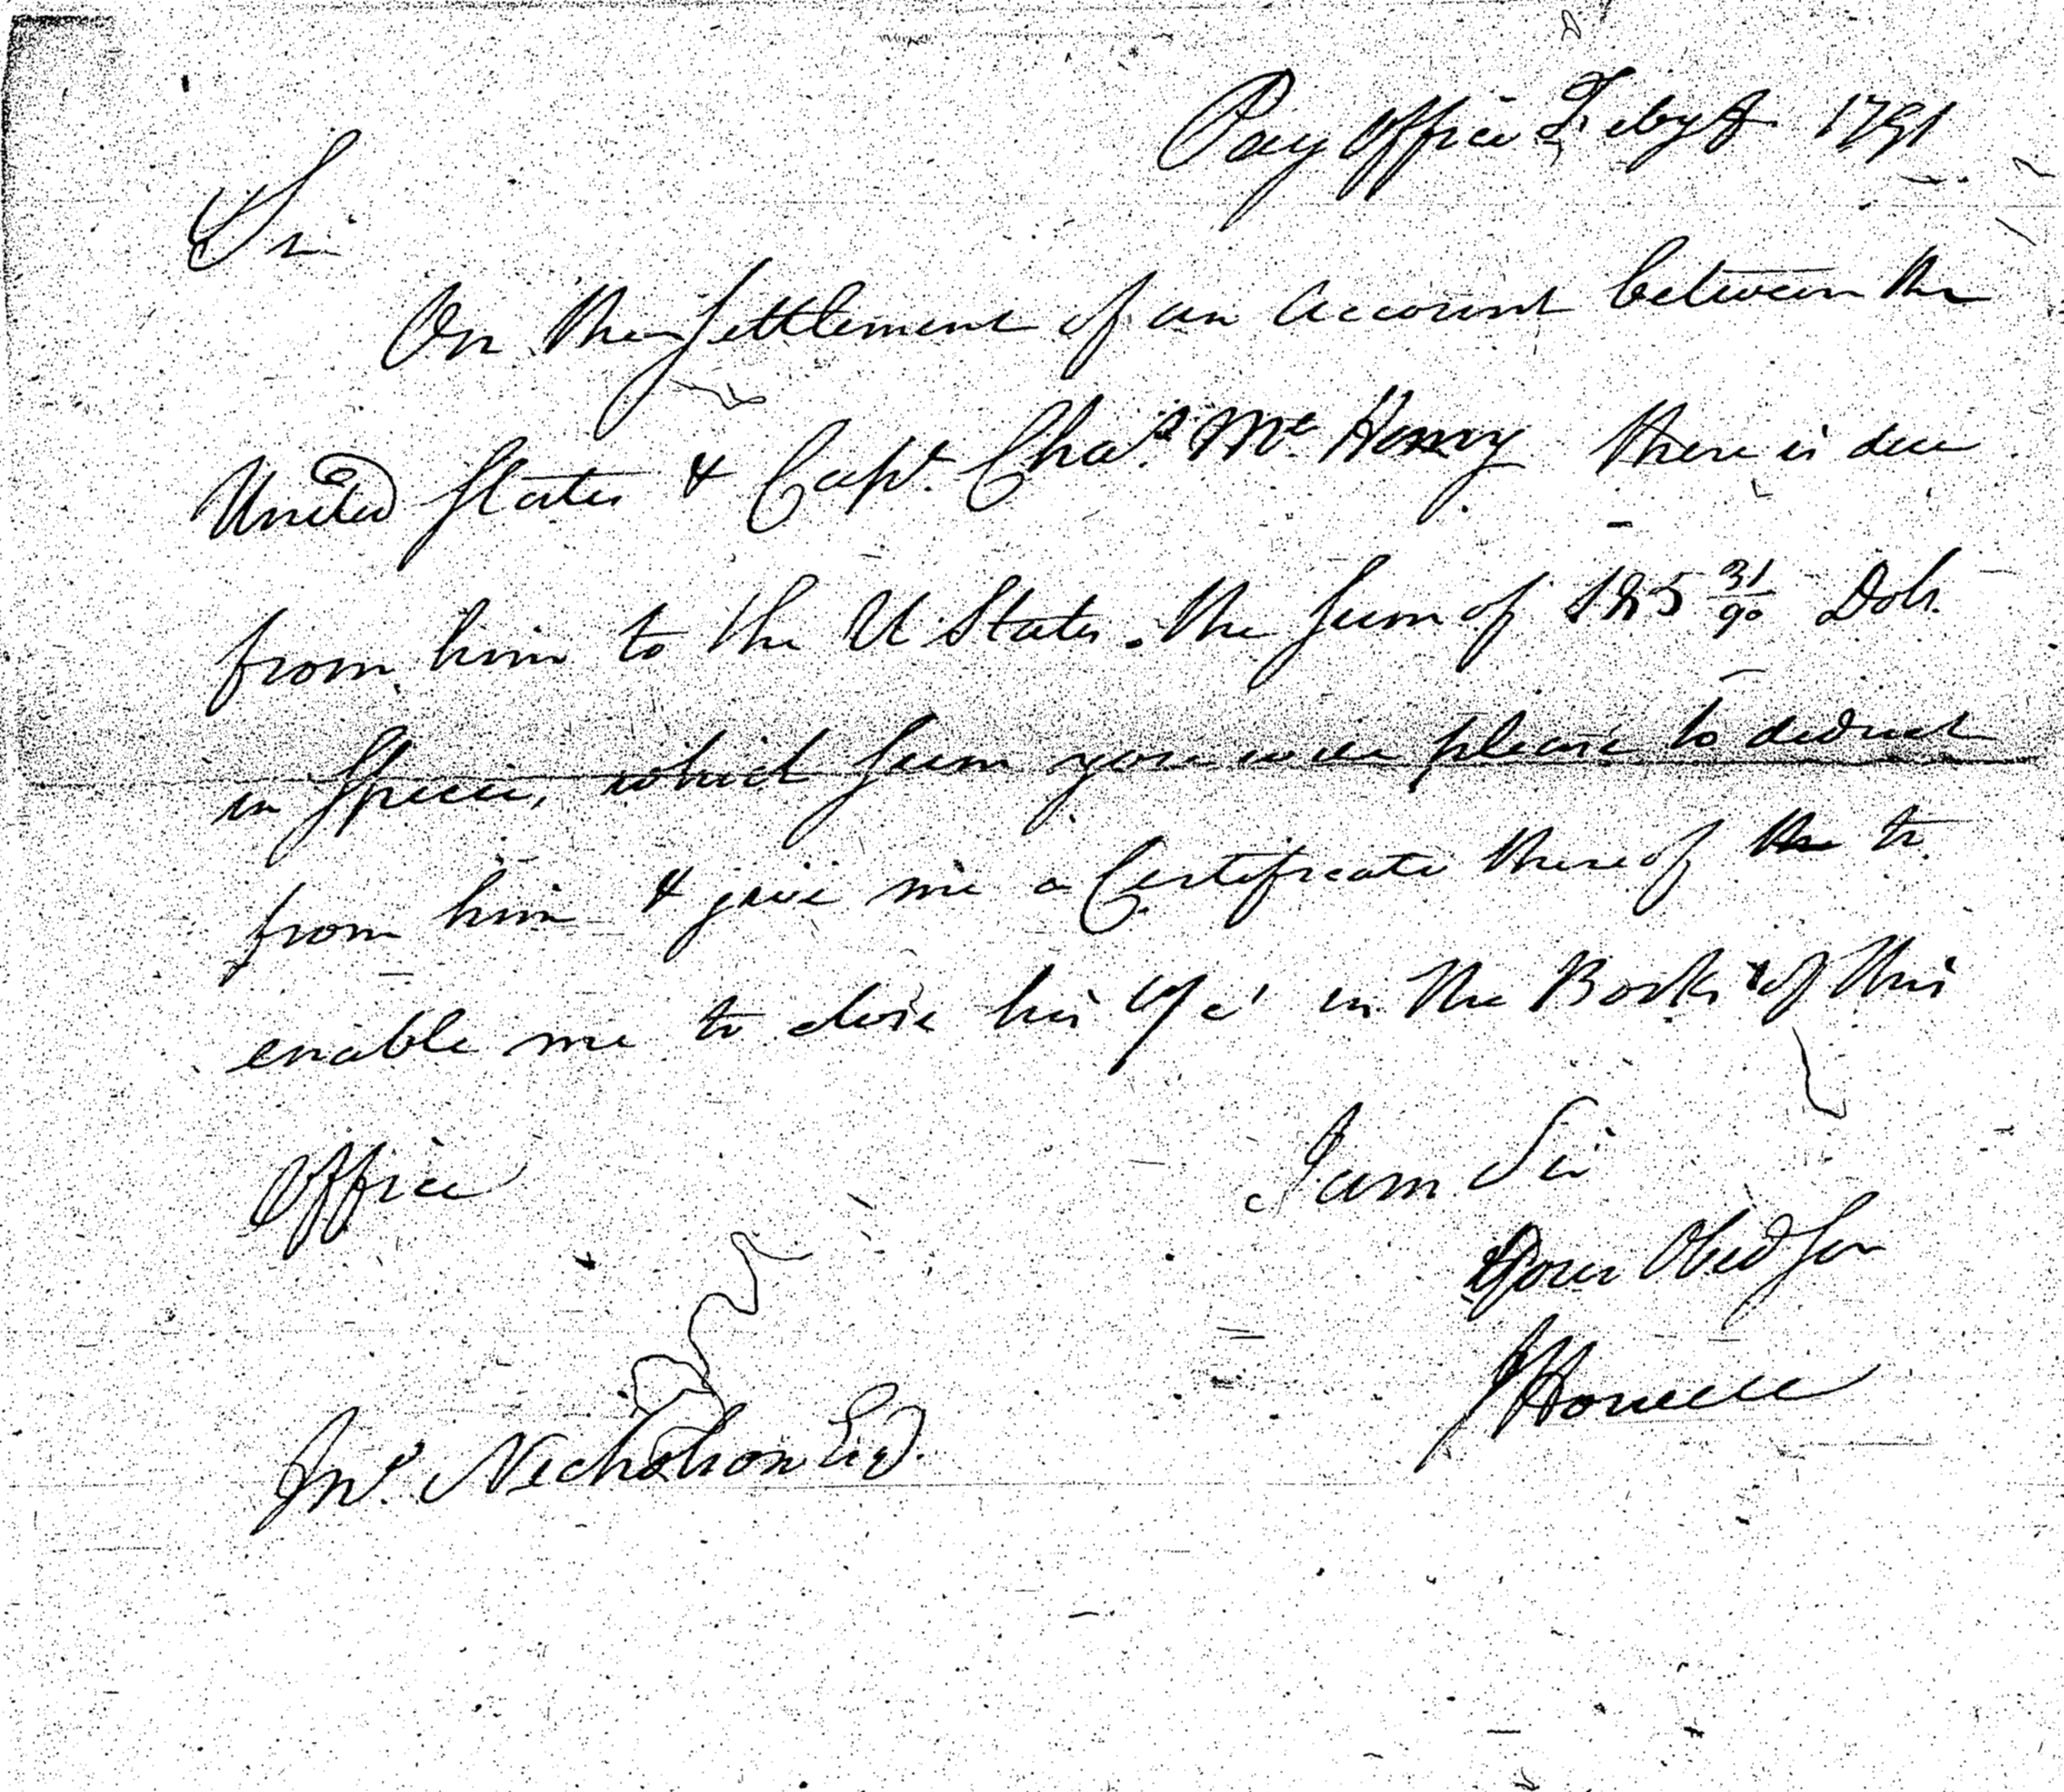 Pay Office Feby 1791
Sir
On the Settlement of an Account between the
United States & Capt. Chas. Mc. Henry there is due
from him to the U States. the Sum of 185 31/90 Dols.
in Specie, which Sum you will please to deduct
from him & give me a Certificate thereof the to
enable me to close his a/c in the Books of this
Office
I am Sir
Your Obed Ser
J Howell
Jno. Nicholson Esq.